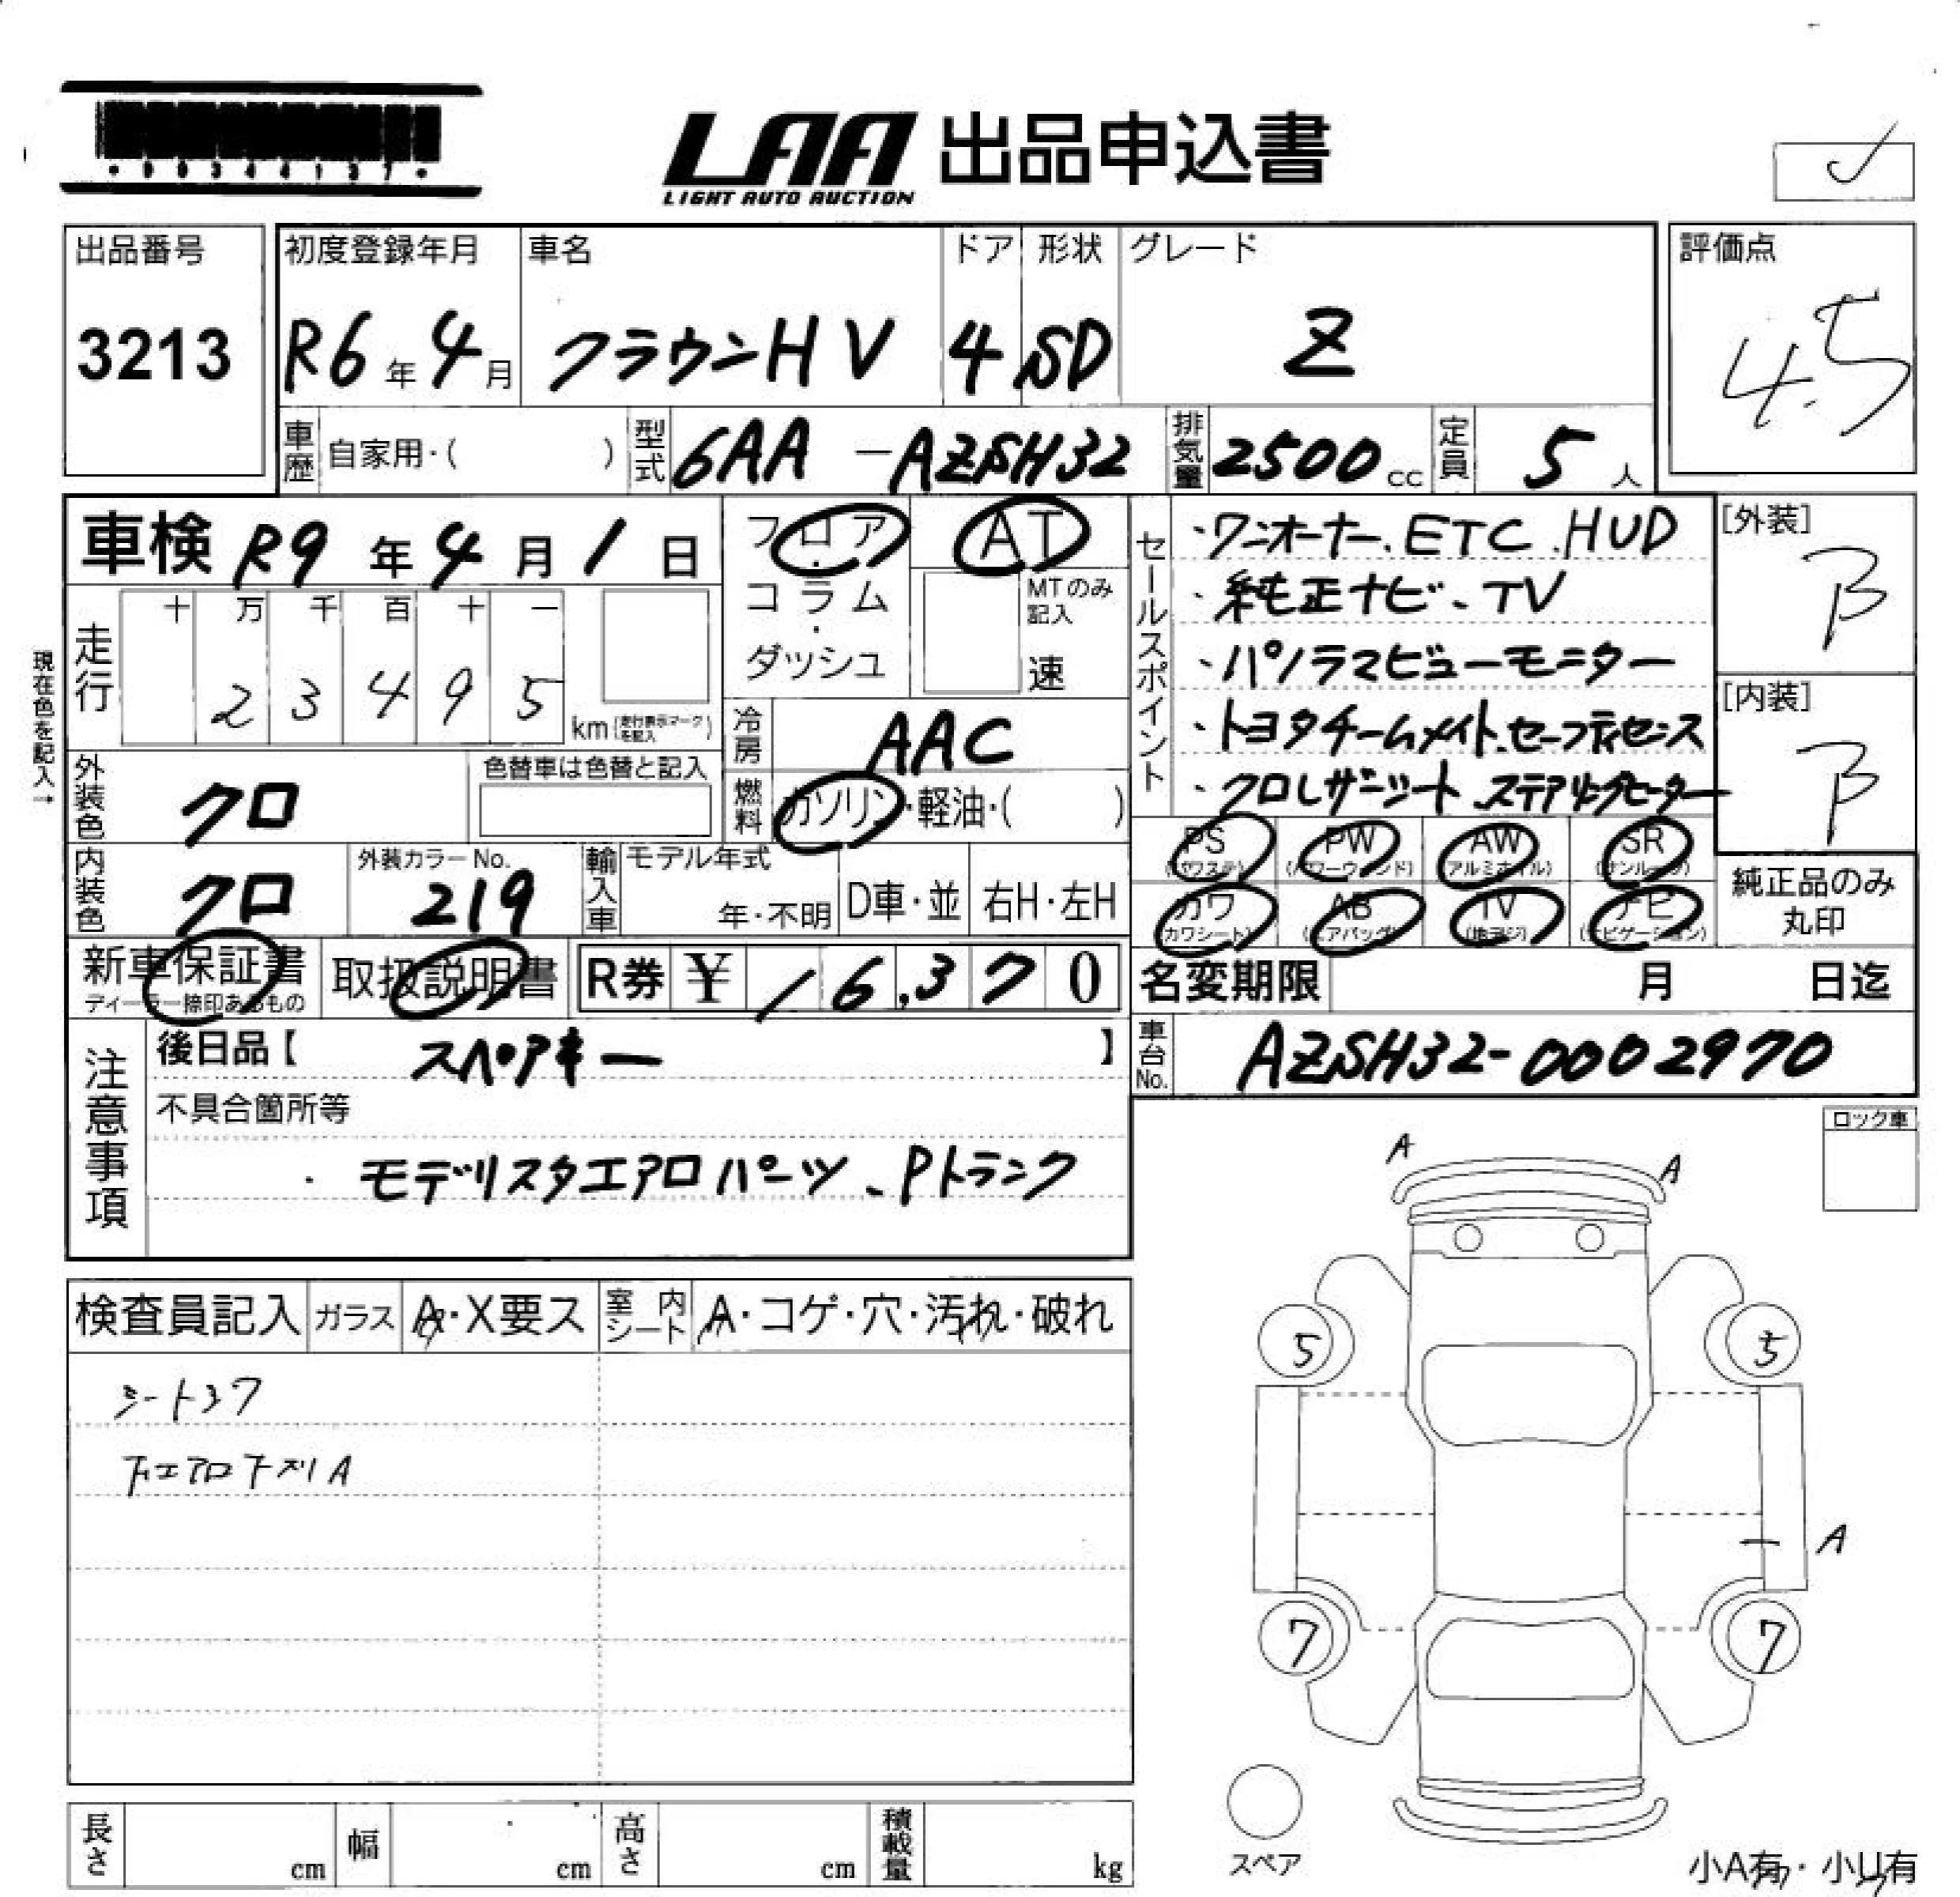 ・00344137・
LAA 出品申込書
LIGHT AUTO AUCTION
出品番号 初度登録年月 車名 ドア 形状 グレード 評価点
3213 R6年 4月 クラウンHV 4 SD Z 4.5
車歴 自家用・( ) 型式 6AA-AZSH32 排気量 2500cc 定員 5人
車検 R9年4月1日
フロア・コラム・ダッシュ
AT
MTのみ記入
速
セールスポイント
・ワンオーナー、ETC、HUD
・純正ナビ、TV
・パノラマビューモニター
・トヨタチームメイト、セーフティセンス
・クロレザーシート、ステアリングヒーター
[外装]
B
[内装]
B
現在色を記入→
走行 十 万 千 百 十 一
2 3 4 9 5 km(走行表示マークを記入)
冷房 AAC
外装色 クロ 色替車は色替と記入
燃料 ガソリン・軽油・( )
PS(パワステ) PW(パワーウィンド) AW(アルミホイル) SR(サンルーフ)
カワ(カワシート) AB(エアバッグ) TV(地デジ) ナビ(ナビゲーション)
純正品のみ丸印
内装色 クロ 外装カラーNo. 219 輸入車 モデル年式 年・不明 D車・並 右H・左H
新車保証書 取扱説明書 R券 ¥ 16,370
ディーラー捺印あるもの
名変期限 月 日迄
車台No. AZSH32-0002970
注意事項
後日品【 スペアキー 】
不具合箇所等
・モデリスタエアロパーツ、Pトランク
ロック車
A A
検査員記入 ガラス A・X要ス 室内シート A・コゲ・穴・汚れ・破れ
シートヨゴ
下エアロ下ズリA
5 5
A
7 7
スペア
長さ cm 幅 cm 高さ cm 積載量 kg
小A有・小U有